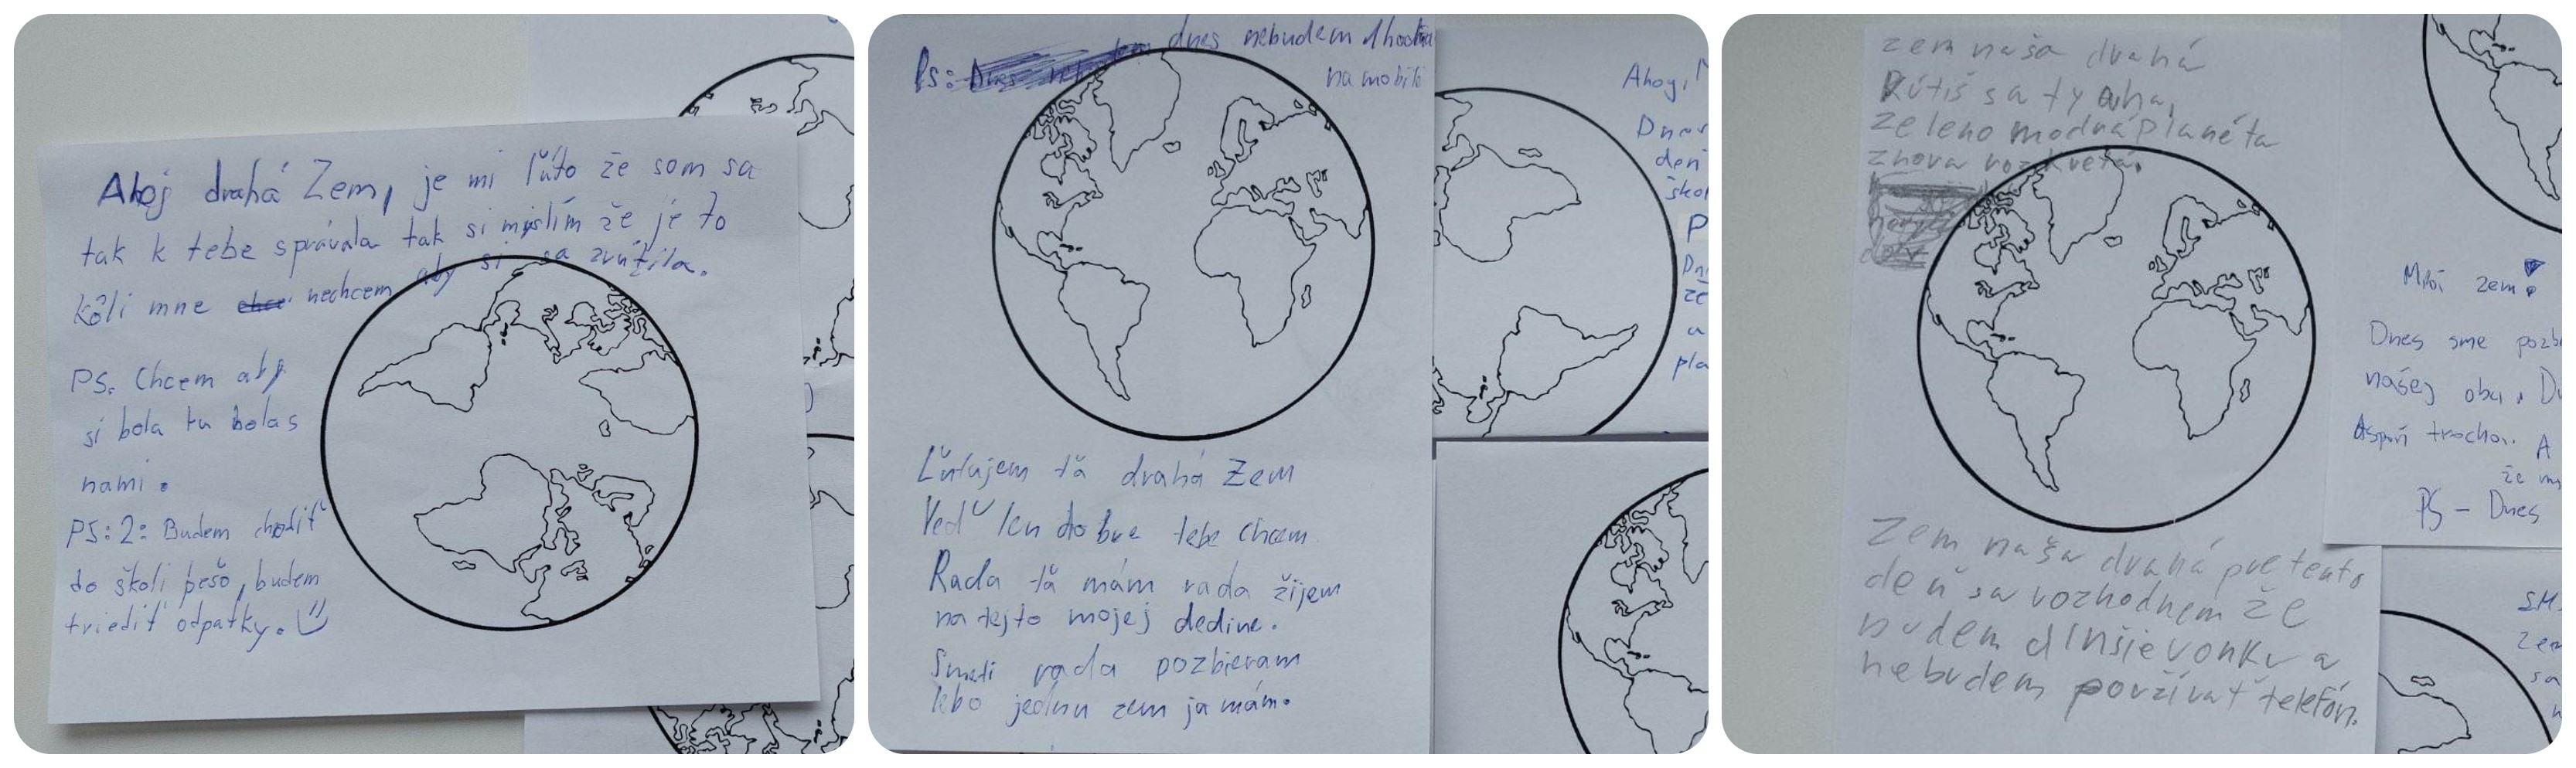 Ahoj drahá Zem, je mi ľúto že som sa
tak k tebe správala tak si myslím že je to
kôli mne nechcem aby si sa zrútila.
PS. Chcem aby
si bola tu bola s
nami.
PS:2: Budem chodiť
do školi pešo, budem
triediť odpatky.
Ps: dnes nebudem dhodia
na mobile
Ľutujem ťa drahá Zem
Veď len dobre tebe chcem
Rada ťa mám rada žijem
na tejto mojej dedine.
Smeti rada pozbieram
lebo jednu zem ja mám.
Ahoj,
Dnes
deň
ško
P
Dn
že
a
pla
zem naša drahá
Rútiš sa ty aha,
zeleno modrá planéta
znova rozkvetá.
Zem naša drahá pre tento
deň sa rozhodnem že
budem dlhšie vonku a
nebudem používať telefón.
Milá zem!
Dnes sme pozbi
našej obci. D
Aspoň trochu. A
že
PS - Dnes
SMS
zem
sa